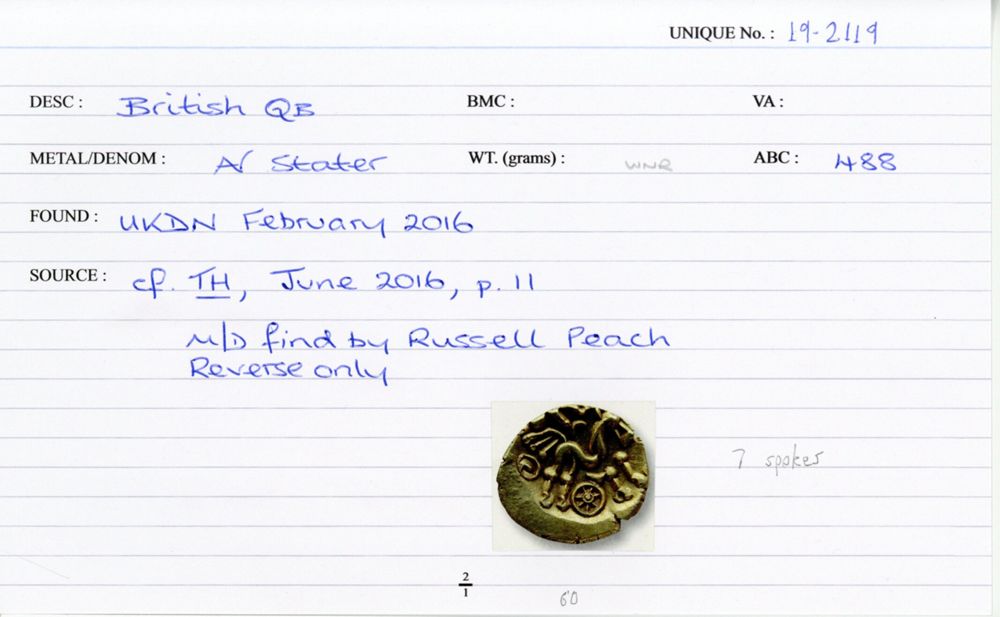 UNIQUE No. : 19-2119
DESC : British QB BMC : VA :
METAL/DENOM : A/ Stater WT. (grams) : WNR ABC : 488
FOUND : UKDN February 2016
SOURCE : cf. TH, June 2016, p. 11
M/D find by Russell Peach
Reverse only
7 spokes
2/1
60